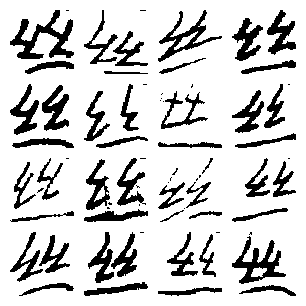 丝丝丝丝
丝丝丝丝
丝丝丝丝
丝丝丝丝